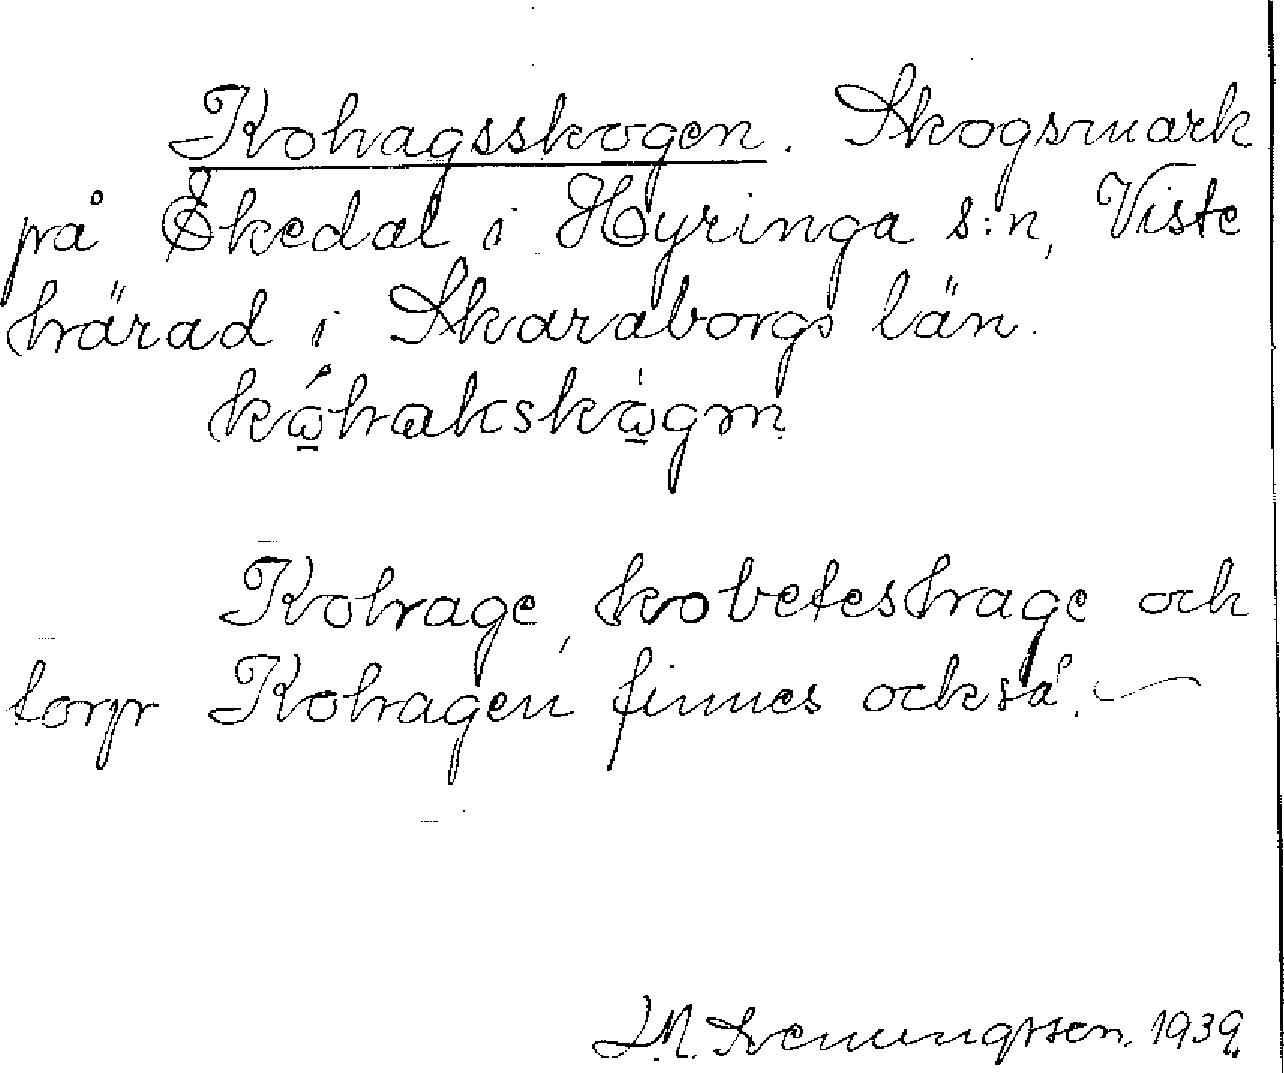 Kohagsskogen. Skogsmark
på Ekedal i Hyringa s:n, Viste
härad i Skaraborgs län.
Kohage, kobeteshage och
torp Kohagen finnes också.
1939.